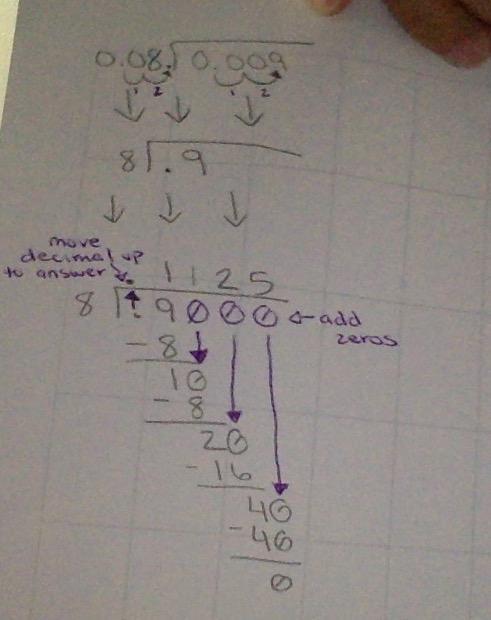 0.08. 0.009
1 2 1 2
8 .9
move
decimal up
to answer . 1125
8 .9000 add
zeros
-8
10
-8
20
-16
40
-40
0